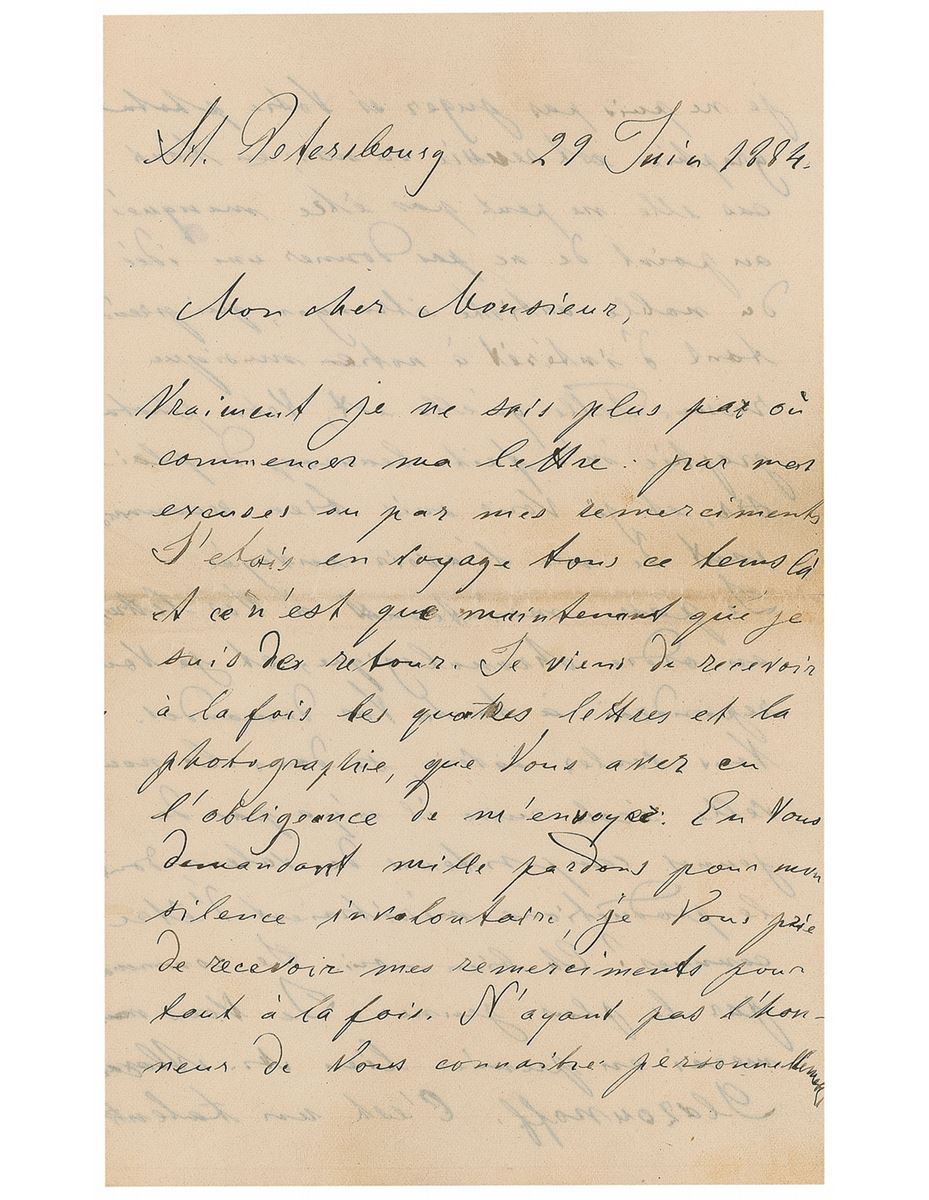 St. Petersbourg 29 Juin 1884.
Mon cher Monsieur,
Vraiment je ne sais plus par où
commencer ma lettre: par mes
excuses ou par mes remerciments
J'etais en voyage tous ce tems là
et ce n'est que maintenant que je
suis de retour. Je viens de recevoir
à la fois les quatres lettres et la
photographie, que Vous avez eu
l'obligeance de m'envoyer. En Vous
demandant mille pardons pour mon
silence involontaire, je Vous prie
de recevoir mes remerciments pour
tout à la fois. N'ayant pas l'hon-
neur de Vous connaitre personnellement